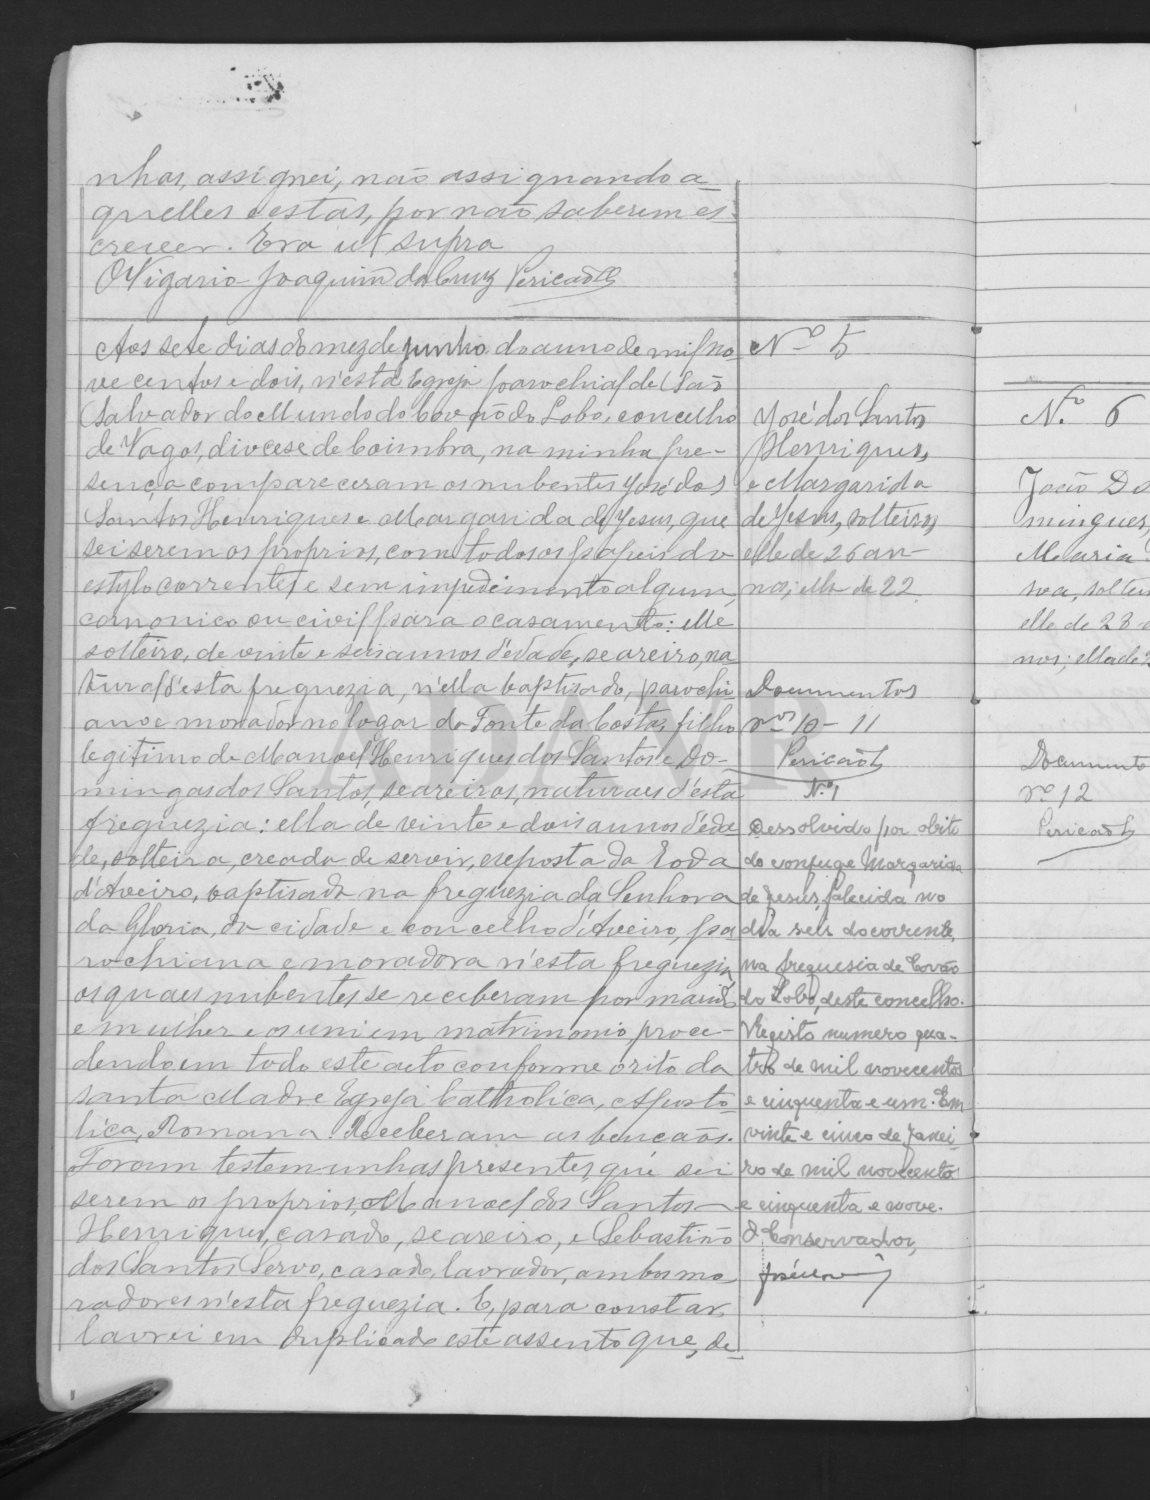 nhas, assignei, não assignando a-
quelles e estas, por não saberem es-
crever. Era ut supra
O Vigario Joaquim da Cruz Pericão
Aos sete dias do mez de junho do anno de mil no
ve centos e dois, n'esta Egreja parochial de São
Salvador do Mundo do Covão do Lobo, concelho
de Vagos, diocese de Coimbra, na minha pre-
sença compareceram os nubentes José dos
Santos Henriques e Margarida de Jesus, que
sei serem os proprios, com todos os papeis do
estylo correntes e sem impedimento algum,
canonico ou civil para o casamento: elle
solteiro, de vinte e seis annos d'edade, seareiro, na
tural d'esta freguezia, n'ella baptisado, parochi
ano e morador no logar da Fonte da Costa, filho
legitimo de Manoel Henriques dos Santos e Do-
mingas dos Santos, seareiros, naturaes d'esta
freguezia: ella de vinte e dois annos d'eda
de, solteira, creada de servir, exposta da Roda
d'Aveiro, baptisada na freguezia da Senhora
da Gloria, da cidade e concelho d'Aveiro, pa
rochiana e moradora n'esta freguezia,
os quaes nubentes se receberam por marido
e mulher e os uni em matrimonio, proce-
dendo em todo este acto conforme o rito da
santa Madre Egreja Catholica, Aposto
lica, Romana. Receberam as bençaõs.
Foram testemunhas presentes, que sei
serem os proprios, Manoel dos Santos
Henriques, casado, seareiro, e Sebastião
dos Santos Servo, casado, lavrador, ambos mo
radores n'esta freguezia. E, para constar,
lavrei em duplicado este assento que, de-
Nº 5
José dos Santos
Henriques,
e Margarida
de Jesus, solteiros,
elle de 26 an-
nos; ella de 22
Documentos
nos 10 - 11
Pericão
N.º 1
Dessolvido por obito
do conjuge Margarida
de Jesus, falecida no
dia seis do corrente,
na freguesia de Covão
do Lobo, deste concelho.
Registo numero qua-
tro de mil novecentos
e cinquenta e um. Em
vinte e cinco de Janei
ro de mil novecentos
e cinquenta e nove.
O Conservador,
N.º 6
João Do
mingues,
Maria
solteir
elle de 28
nos; ella de 2
Documento
nº 12
Pericão
ADAVR